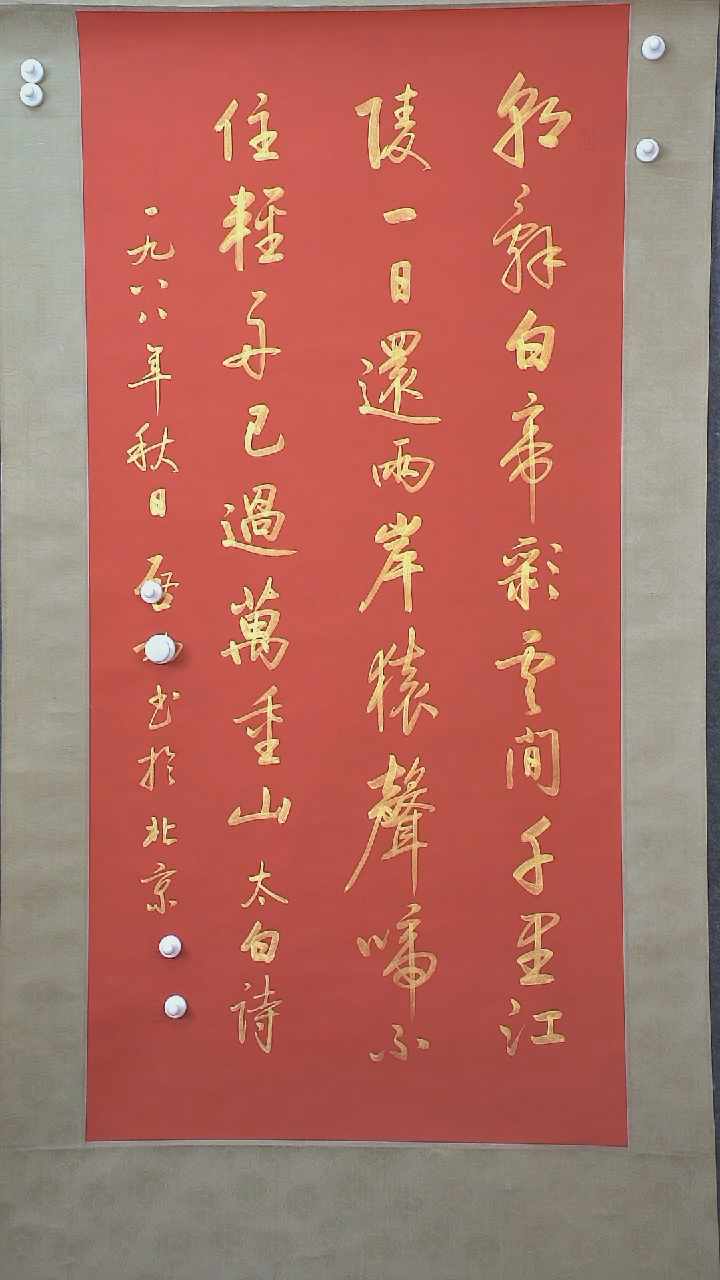 朝辭白帝彩雲間千里江
陵一日還兩岸猿聲啼不
住輕舟已過萬重山太白詩
一九八八年秋日启书於北京